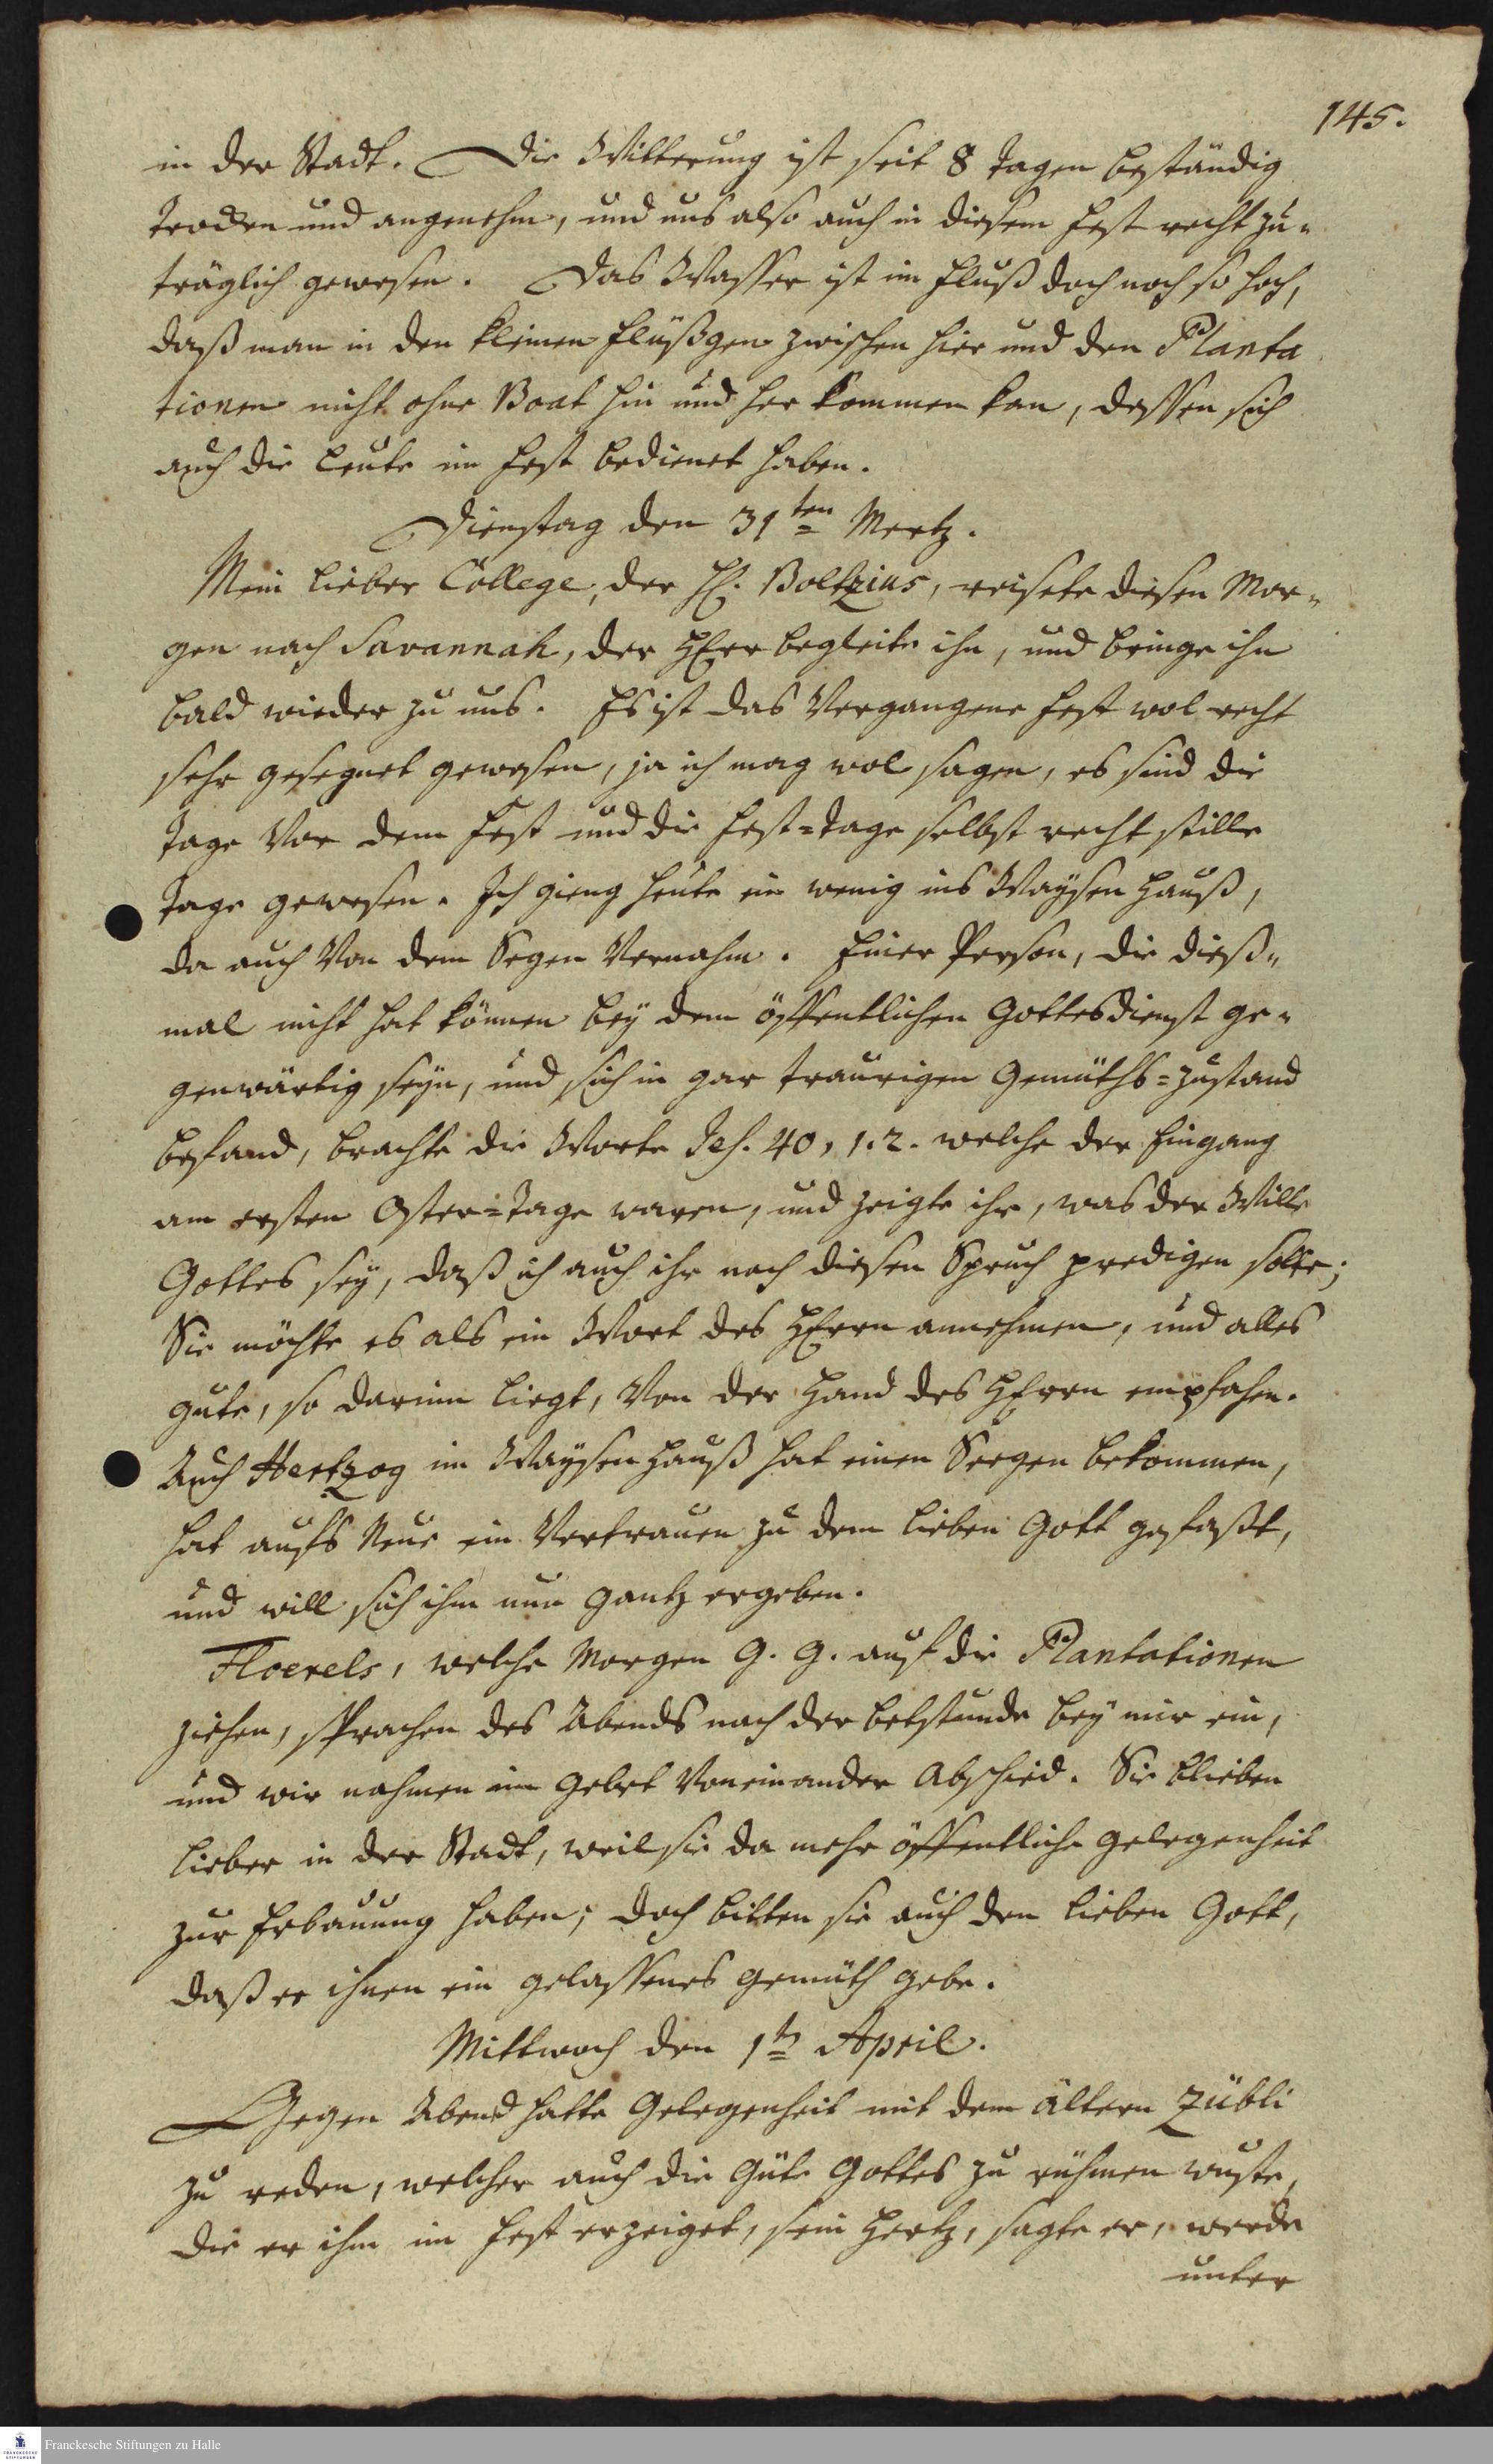 145.
in der Stadt. Die Witterung ist seit 8 Tagen beständig
trocken und angenehm, und uns also auch in diesem Fest recht zu-
träglich gewesen. Das Wasser ist im Fluß doch noch so hoch,
daß man in den kleinen Flüßgen zwischen hier und den Planta
tionen nicht ohne Boat hin und her kommen kan, dessen sich
auch die Leute im Fest bedienet haben.
Dienstag den 31ten Mertz.
Mein lieber College, der H. Boltzius, reisete diesen Mor-
gen nach Savannah, der HErr begleite ihn, und bringe ihn
bald wieder zu uns. Es ist das Vergangene Fest wol recht
sehr gesegnet gewesen, ja ich mag wol sagen, es sind die
Tage Vor dem Fest und die Fest-Tage selbst recht stille
Tage gewesen. Ich gieng heute ein wenig ins Waysenhauß,
da auch Von dem Segen Vernahm. Einer Person, die dieß-
mal nicht hat können bey dem öffentlichen Gottesdienst ge-
genwärtig seyn, und sich in gar traurigen Gemüths-Zustand
befand, brachte die Worte Jes. 40, 1.2. welche der Eingang
am ersten Oster-Tage waren, und zeigte ihr, was der Wille
Gottes sey, daß ich auch ihr nach diesen Spruch predigen solte;
Sie möchte es als ein Wort des HErrn annehmen, und alles
gute, so darinn liegt, Von der Hand des HErrn empfahen.
Auch Hertzog im Waysenhauß hat einen Seegen bekommen,
hat aufs Neue ein Vertrauen zu dem lieben Gott gefaßt,
und will sich ihm nun gantz ergeben.
Floerels, welche Morgen G. G. auf die Plantationen
ziehen, sprachen des Abends nach der betstunde bey mir ein,
und wir nahmen im Gebet Voneinander Abschied. Sie blieben
lieber in der Stadt, weil sie da mehr öffentliche gelegenheit
zur Erbauung haben; doch bitten sie auch den lieben Gott,
daß er ihnen ein gelassenes Gemüth gebe.
Mittwoch den 1ten April.
Gegen Abend hatte Gelegenheit mit dem ältern Zübli
zu reden, welcher auch die Güte Gottes zu rühmen wuste,
die er ihm im Fest erzeiget, sein Hertz, sagte er, werde
unter
Franckesche Stiftungen zu Halle